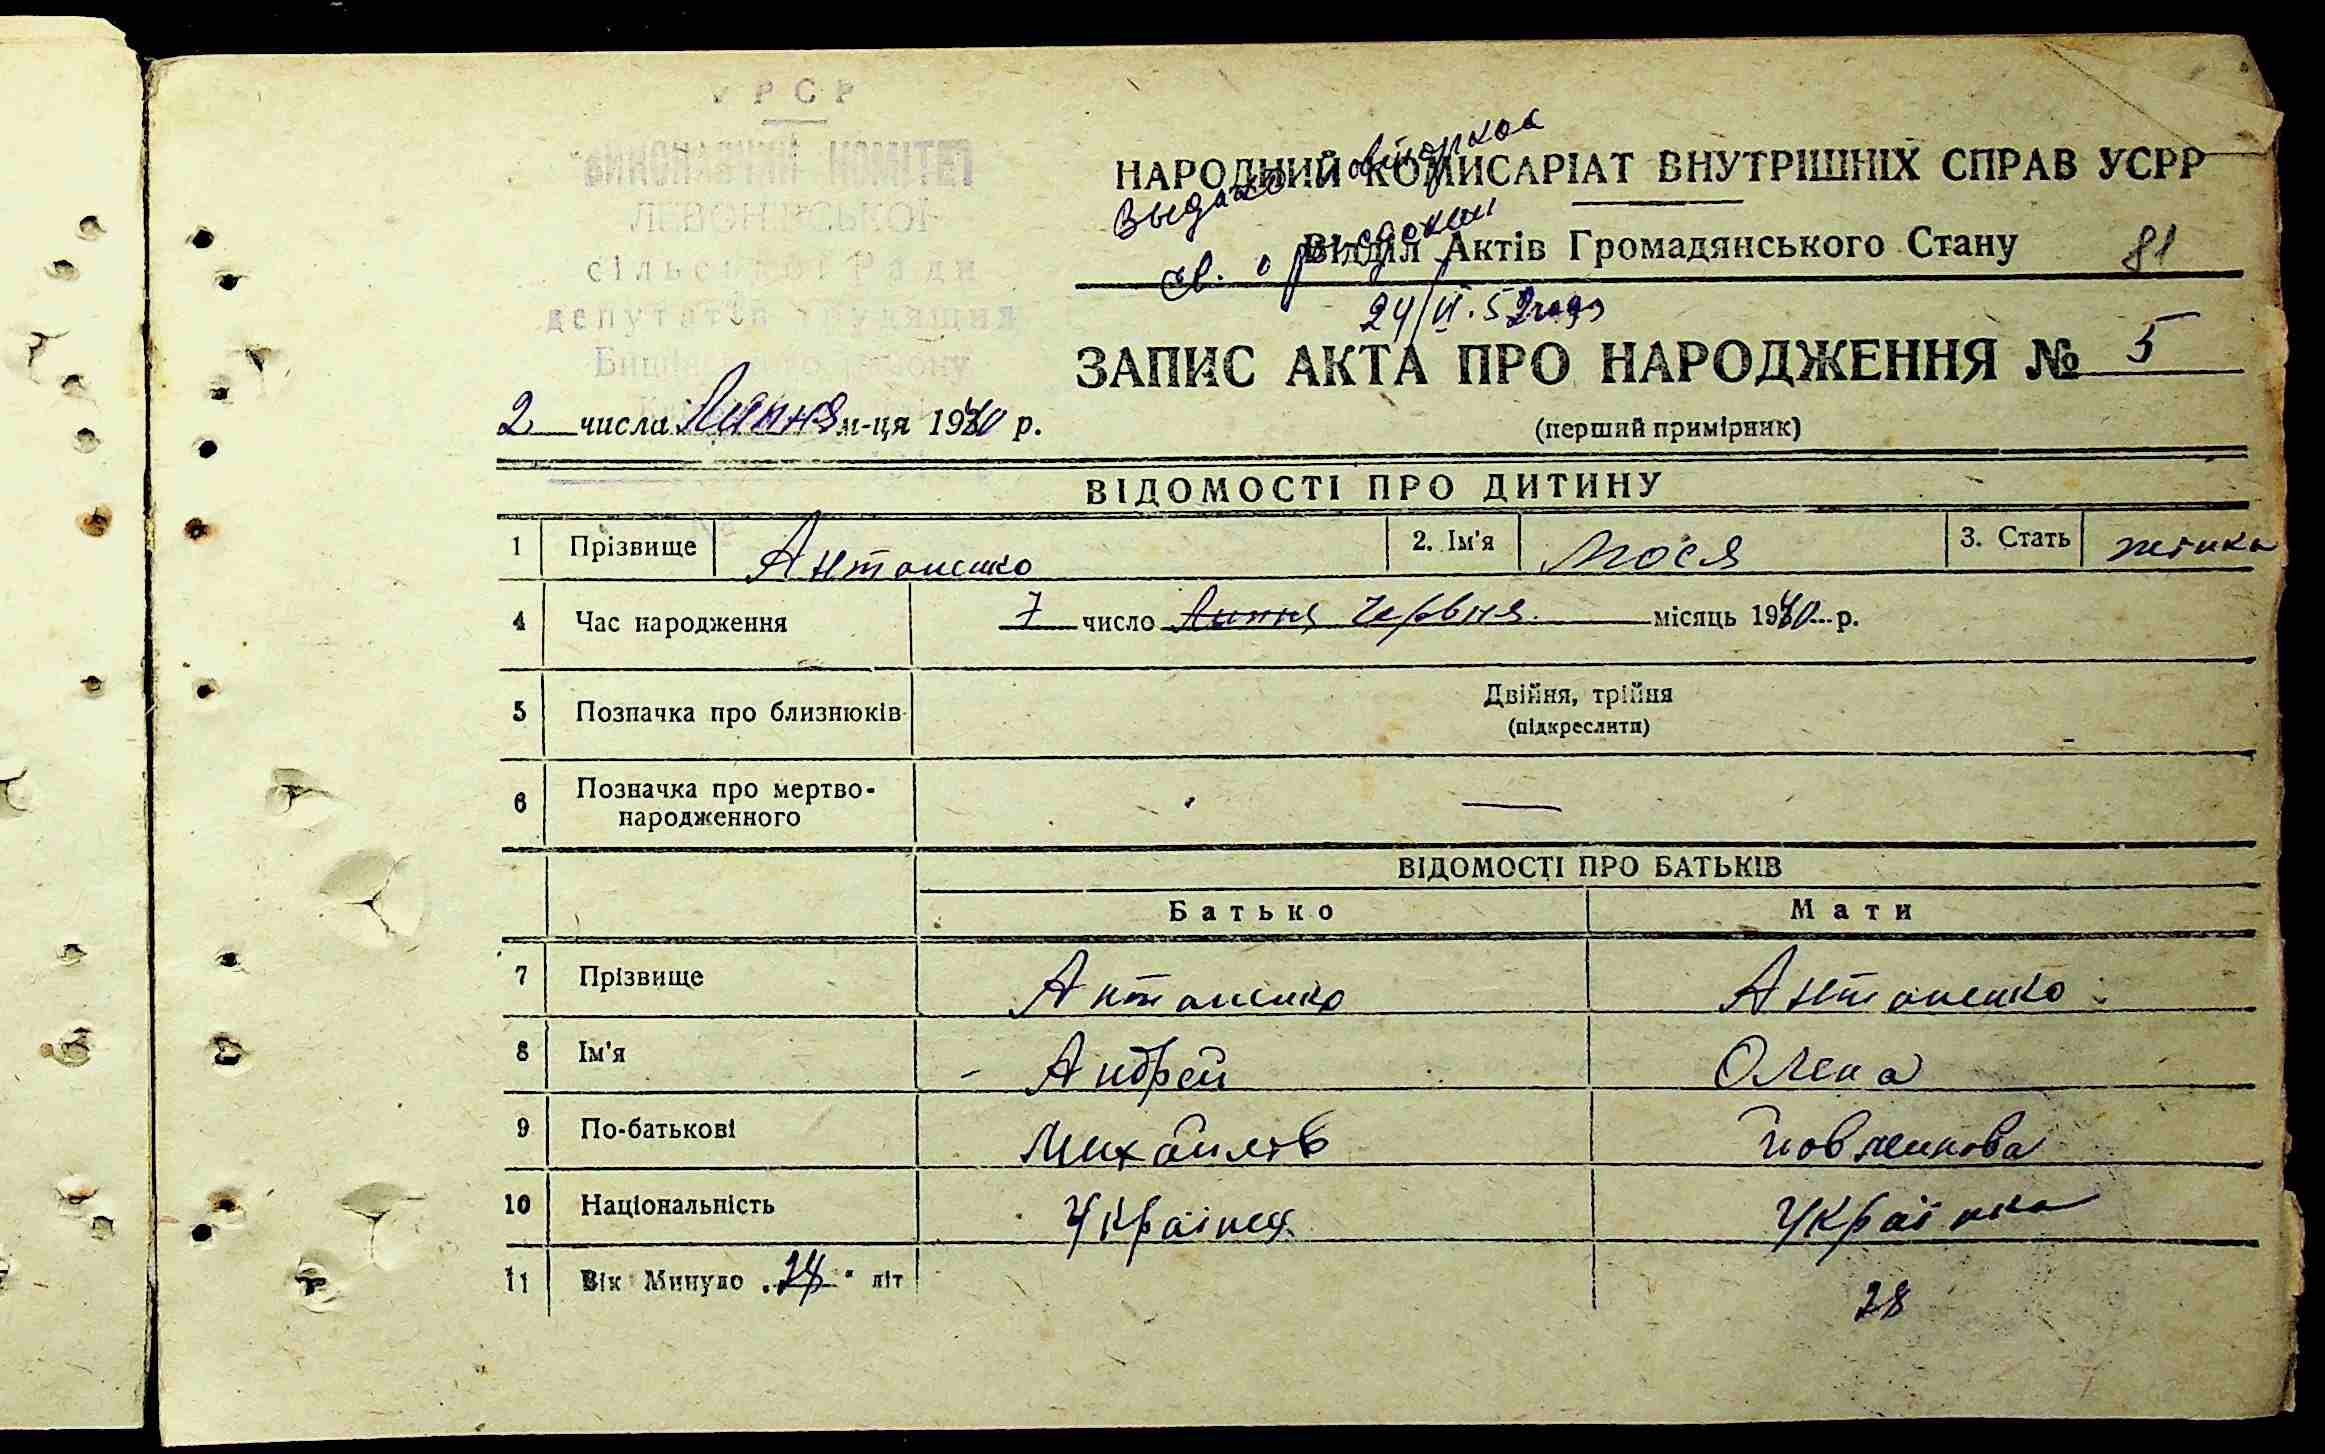 УРСР
ВИКОНАВЧИЙ КОМІТЕТ
ЛЕВОНІВСЬКОЇ
сільської Ради
депутатів трудящих
району
НАРОДНИЙ КОМИСАРІАТ ВНУТРІШНІХ СПРАВ УСРР
Выдано повторное
св. о рождении
24/VI.52года
Відділ Актів Громадянського Стану 81
ЗАПИС АКТА ПРО НАРОДЖЕННЯ № 5
2 числа Липня м-ця 1940 р.
(перший примірник)
ВІДОМОСТІ ПРО ДИТИНУ
1 Прізвище Антоненко 2. Ім'я Люся 3. Стать жінка
4 Час народження 7 число Липня Червня місяць 1940 р.
5 Позначка про близнюків Двійня, трійня
(підкреслити)
6 Позначка про мертво-
народженного —
ВІДОМОСТІ ПРО БАТЬКІВ
Батько Мати
7 Прізвище Антоненко Антоненко
8 Ім'я Андрей Олена
9 По-батькові Михайлов
10 Національність Українец Українка
11 Вік Минуло „28" літ 28